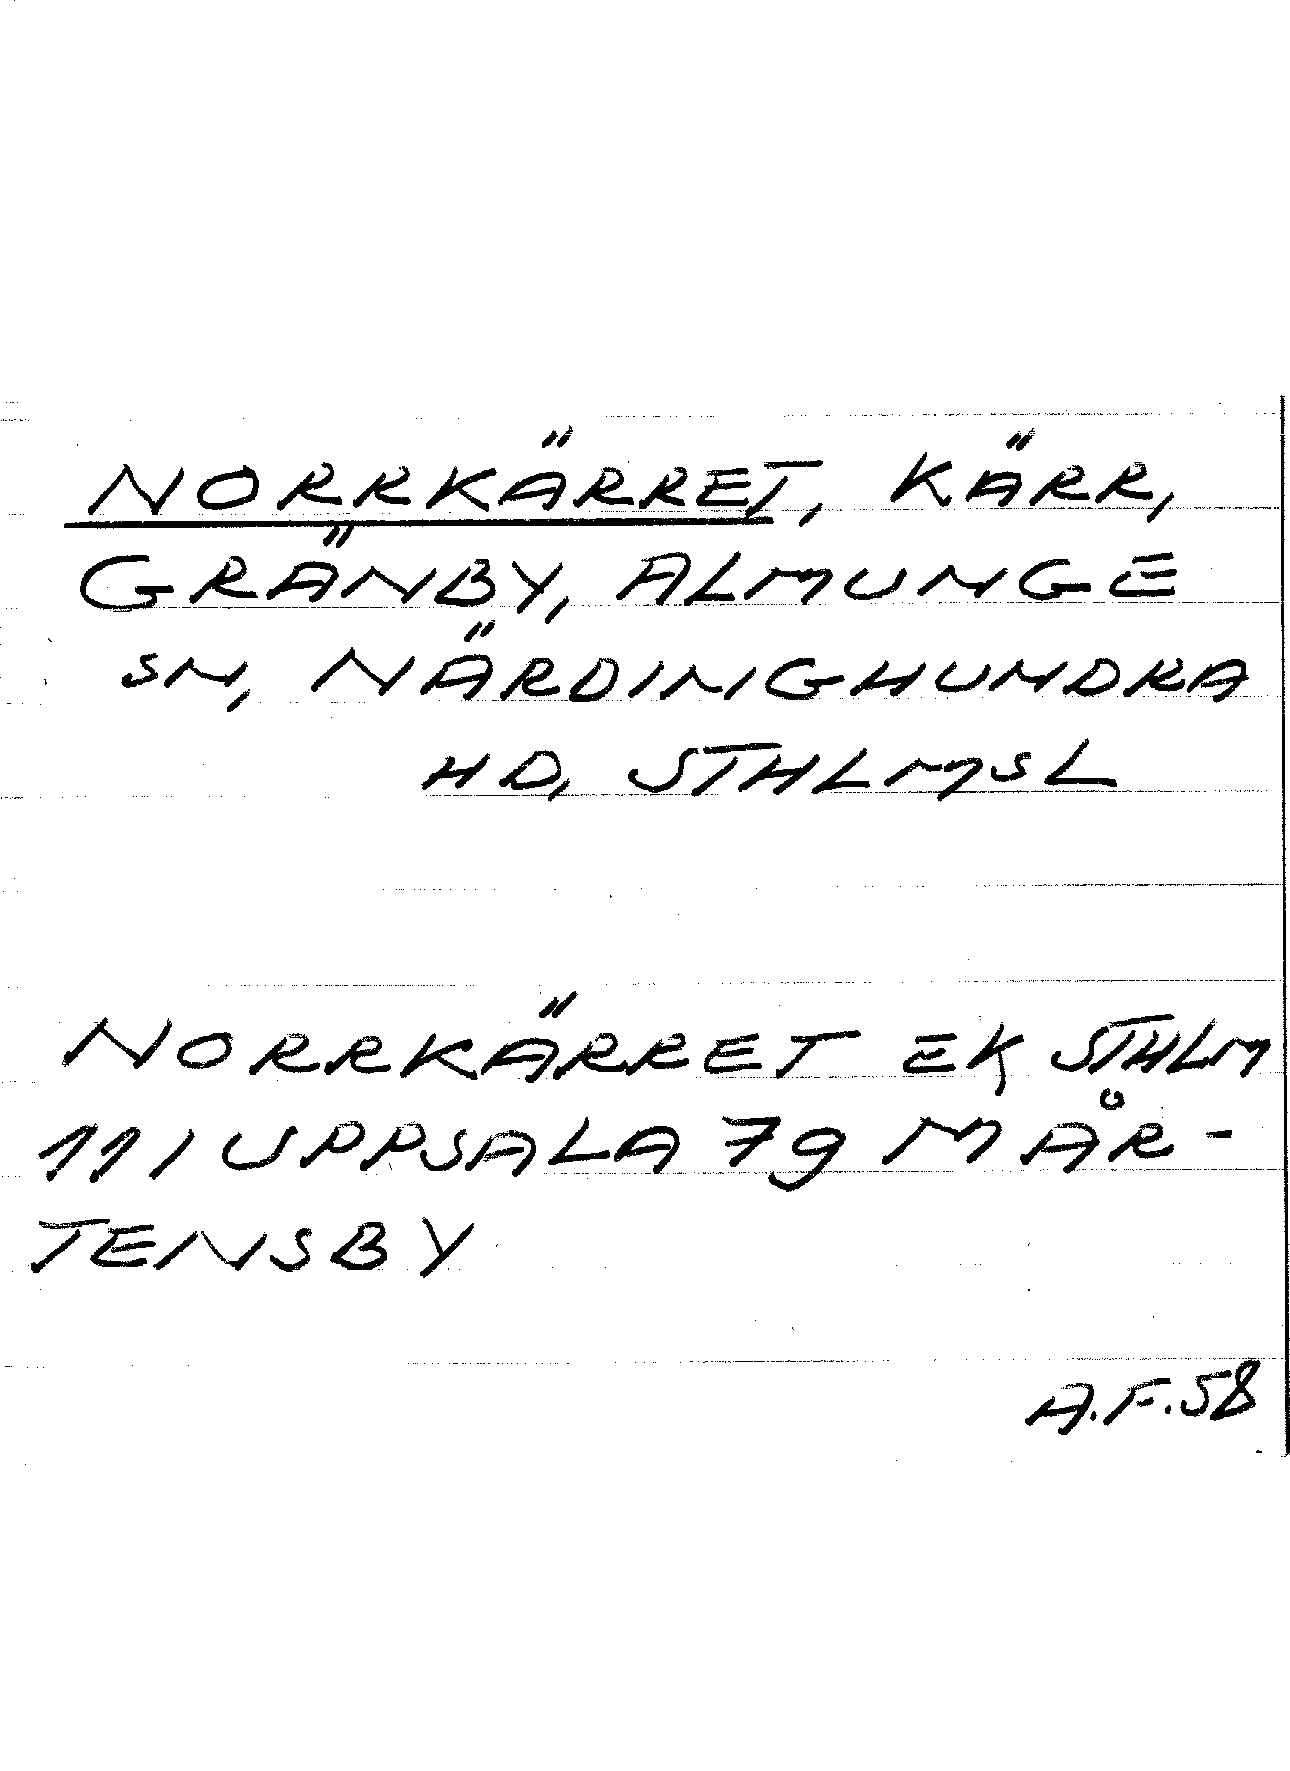 NORRKÄRRET, KÄRR,
GRÄNBY, ALMUNGE
SN, NÄRDINGHUNDRA
HD, STHLMSL
NORRKÄRRET EK STHLM
111 UPPSALA 79 MÅR-
TENSBY
A.F.58